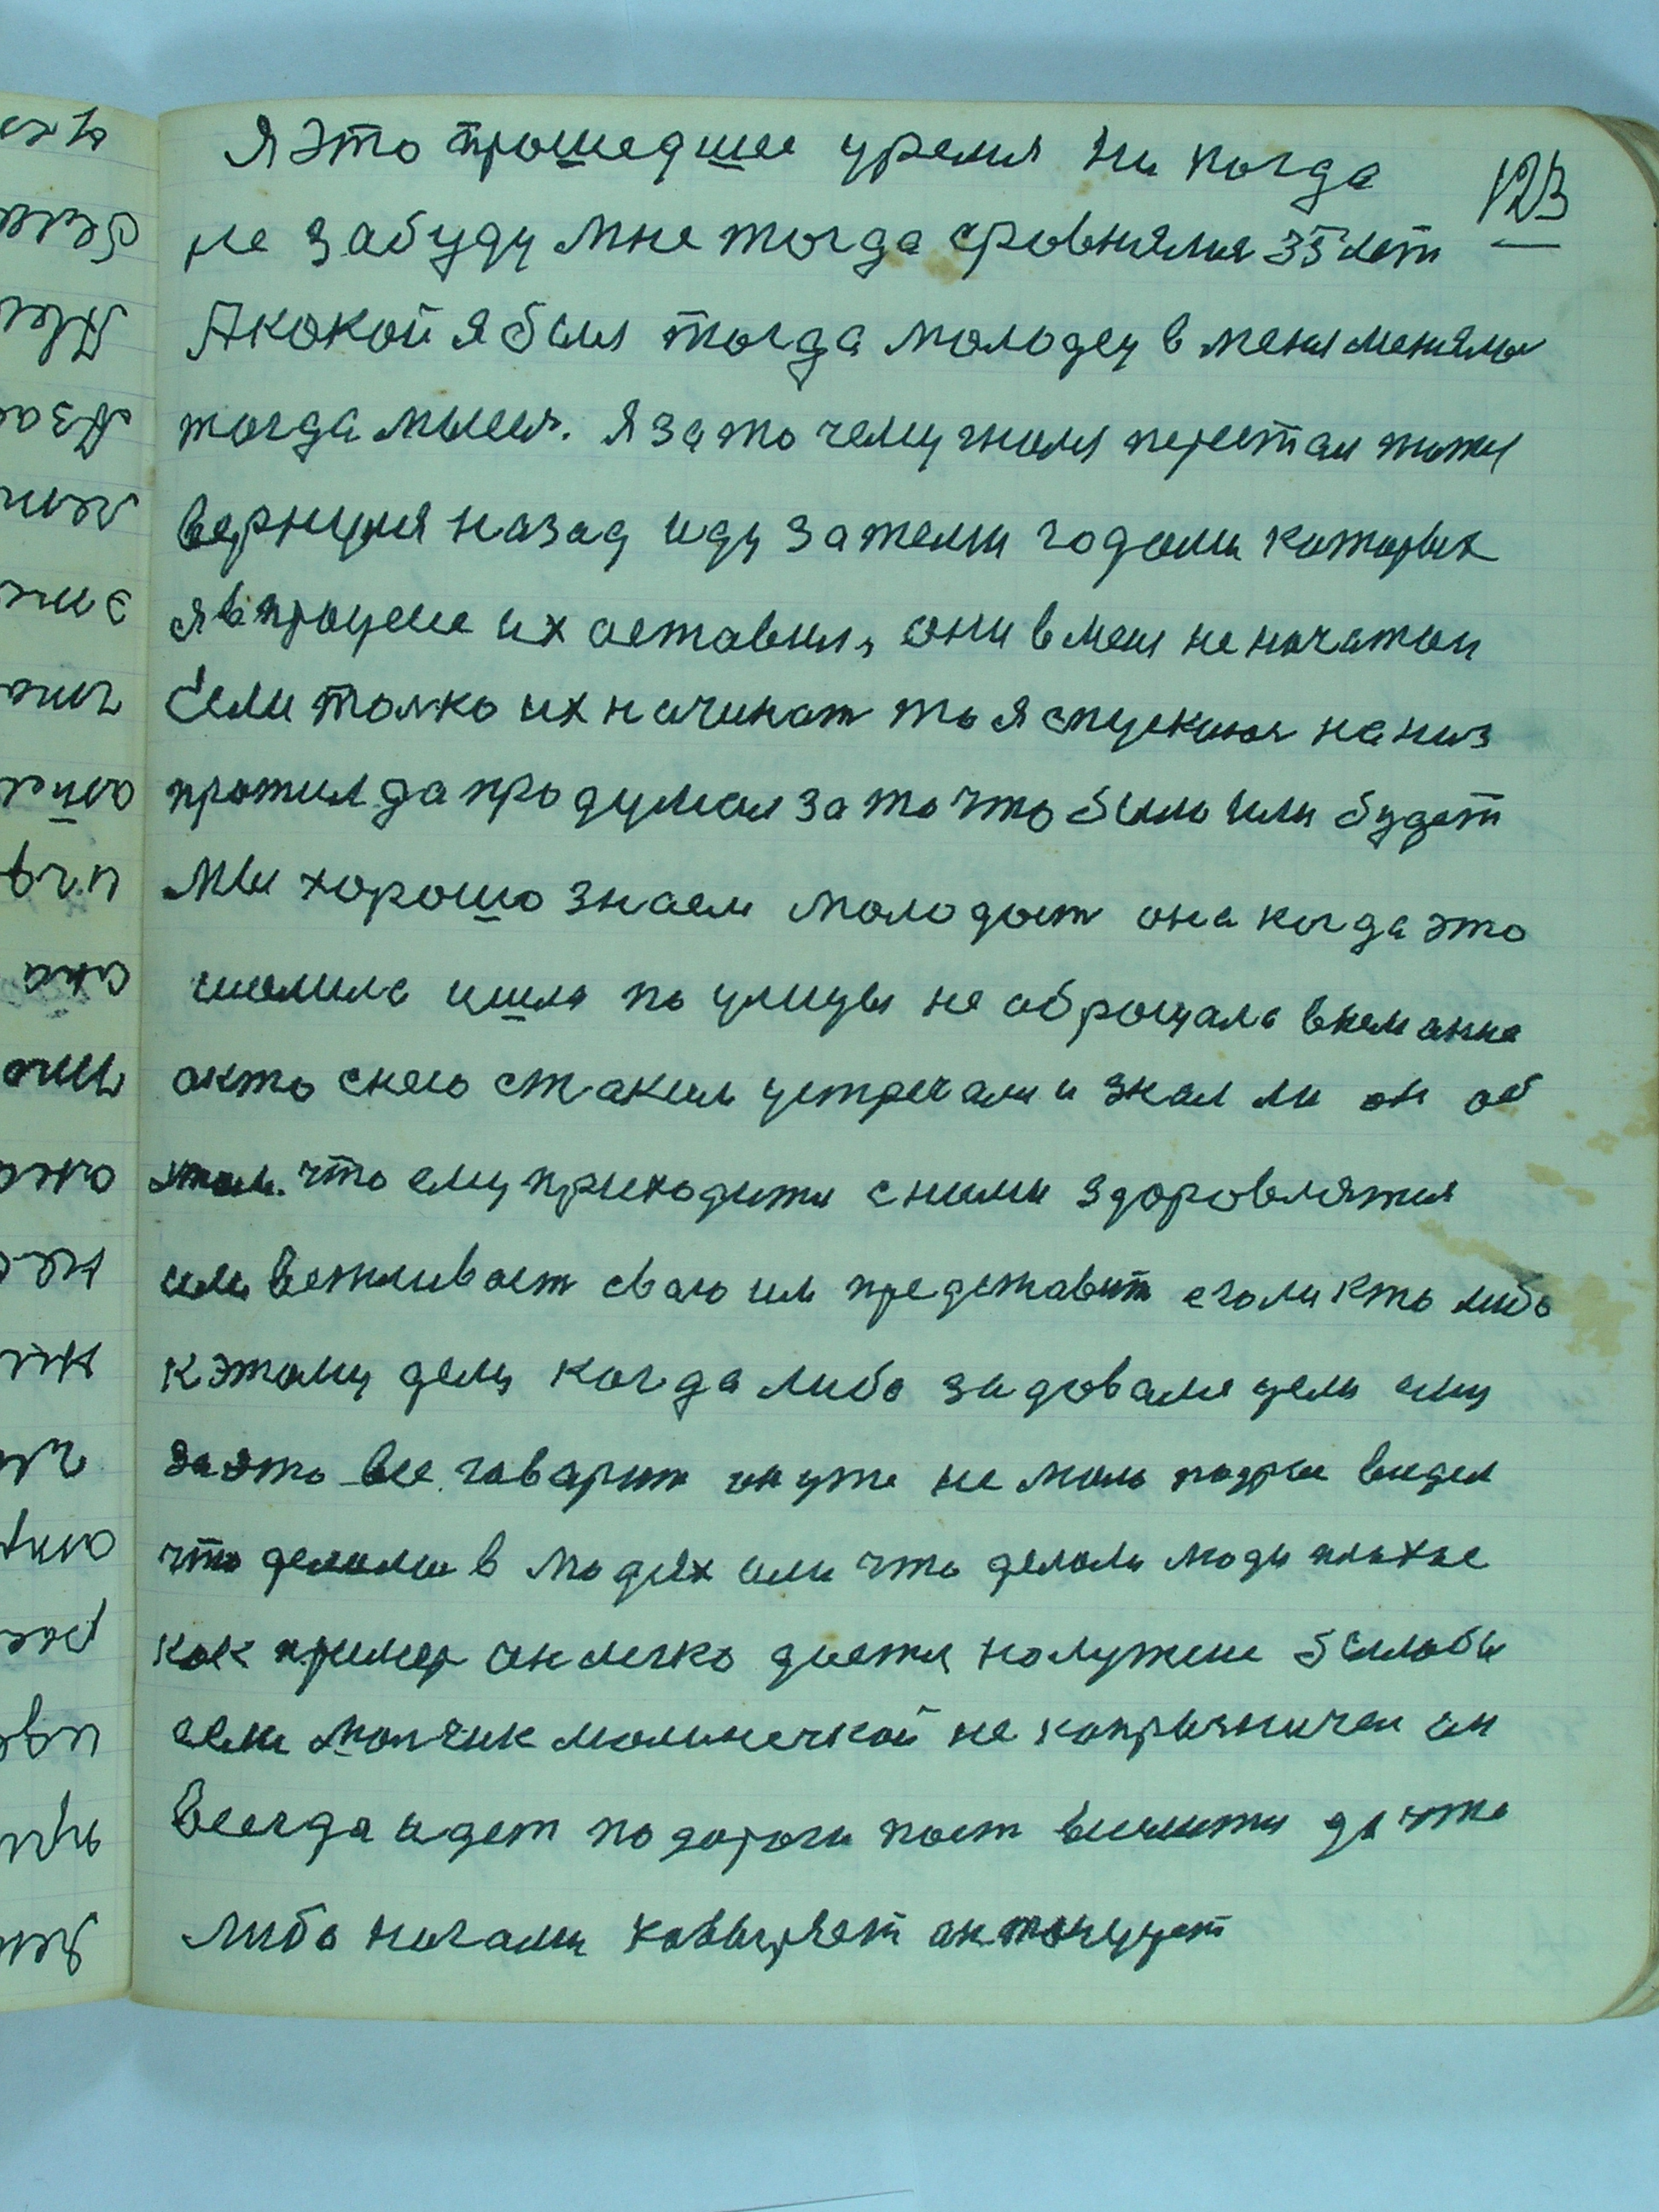 123
Я это прошедшее уремя ни когда
не забуду мне тогда сровнялся 35 лет
А кокой я был тогда молодец в меня менялась
тогда мысля. Я за то чему гналя перестал
вернулся назад иду за теми годами которых
я в процесе их оставил, они в меня не начатои
Если толко их начинат то я спускаюся на низ
прожил да продумал за то что было или будет
Мы хорошо знаем молодост она когда это
шолила ишла по улицы не оброщала внимание
а кто снею стаким устречали и знал ли он об
этом. что ему приходится сними здоровлятся
или вежливост свою им представит еголи кто либо
к этому делу когда либо задовале цели ему
за это все говарит он уже не мало подрос видел
что делали в людях или что делали люди плохие
как пример он легко дается на лужение было бы
если молчик малинечкой не копрызничел он
Всегда идет по дороги поет веселится да что
либо ногами ковыряет он танцует